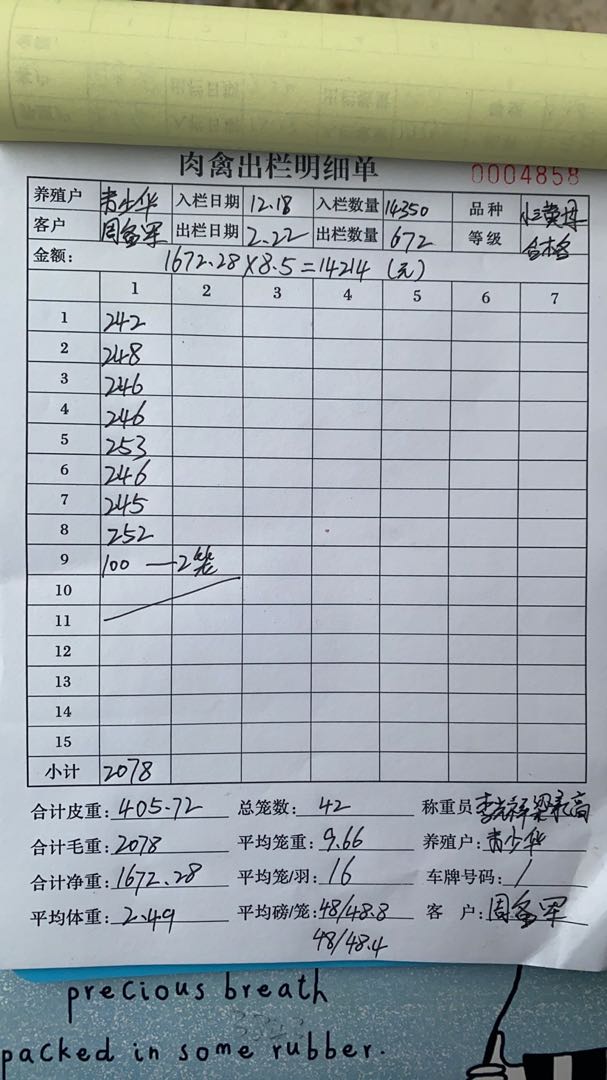 肉禽出栏明细单 0004858
养殖户 青少华 入栏日期 12.18 入栏数量 14350 品种
客户 周富军 出栏日期 2.22 出栏数量 672 等级 合格
金额: 1672.28×8.5=14214 (元)
1 2 3 4 5 6 7
1 242
2 248
3 246
4 246
5 253
6 246
7 245
8 252
9 100 —2笼
10
11
12
13
14
15
小计 2078
合计皮重: 405.72 总笼数: 42 称重员
合计毛重: 2078 平均笼重: 9.66 养殖户: 青少华
合计净重: 1672.28 平均笼/羽: 16 车牌号码: /
平均体重: 2.49 平均磅/笼: 48/48.8 客 户: 周富军
48/48.4
precious breath
packed in some rubber.